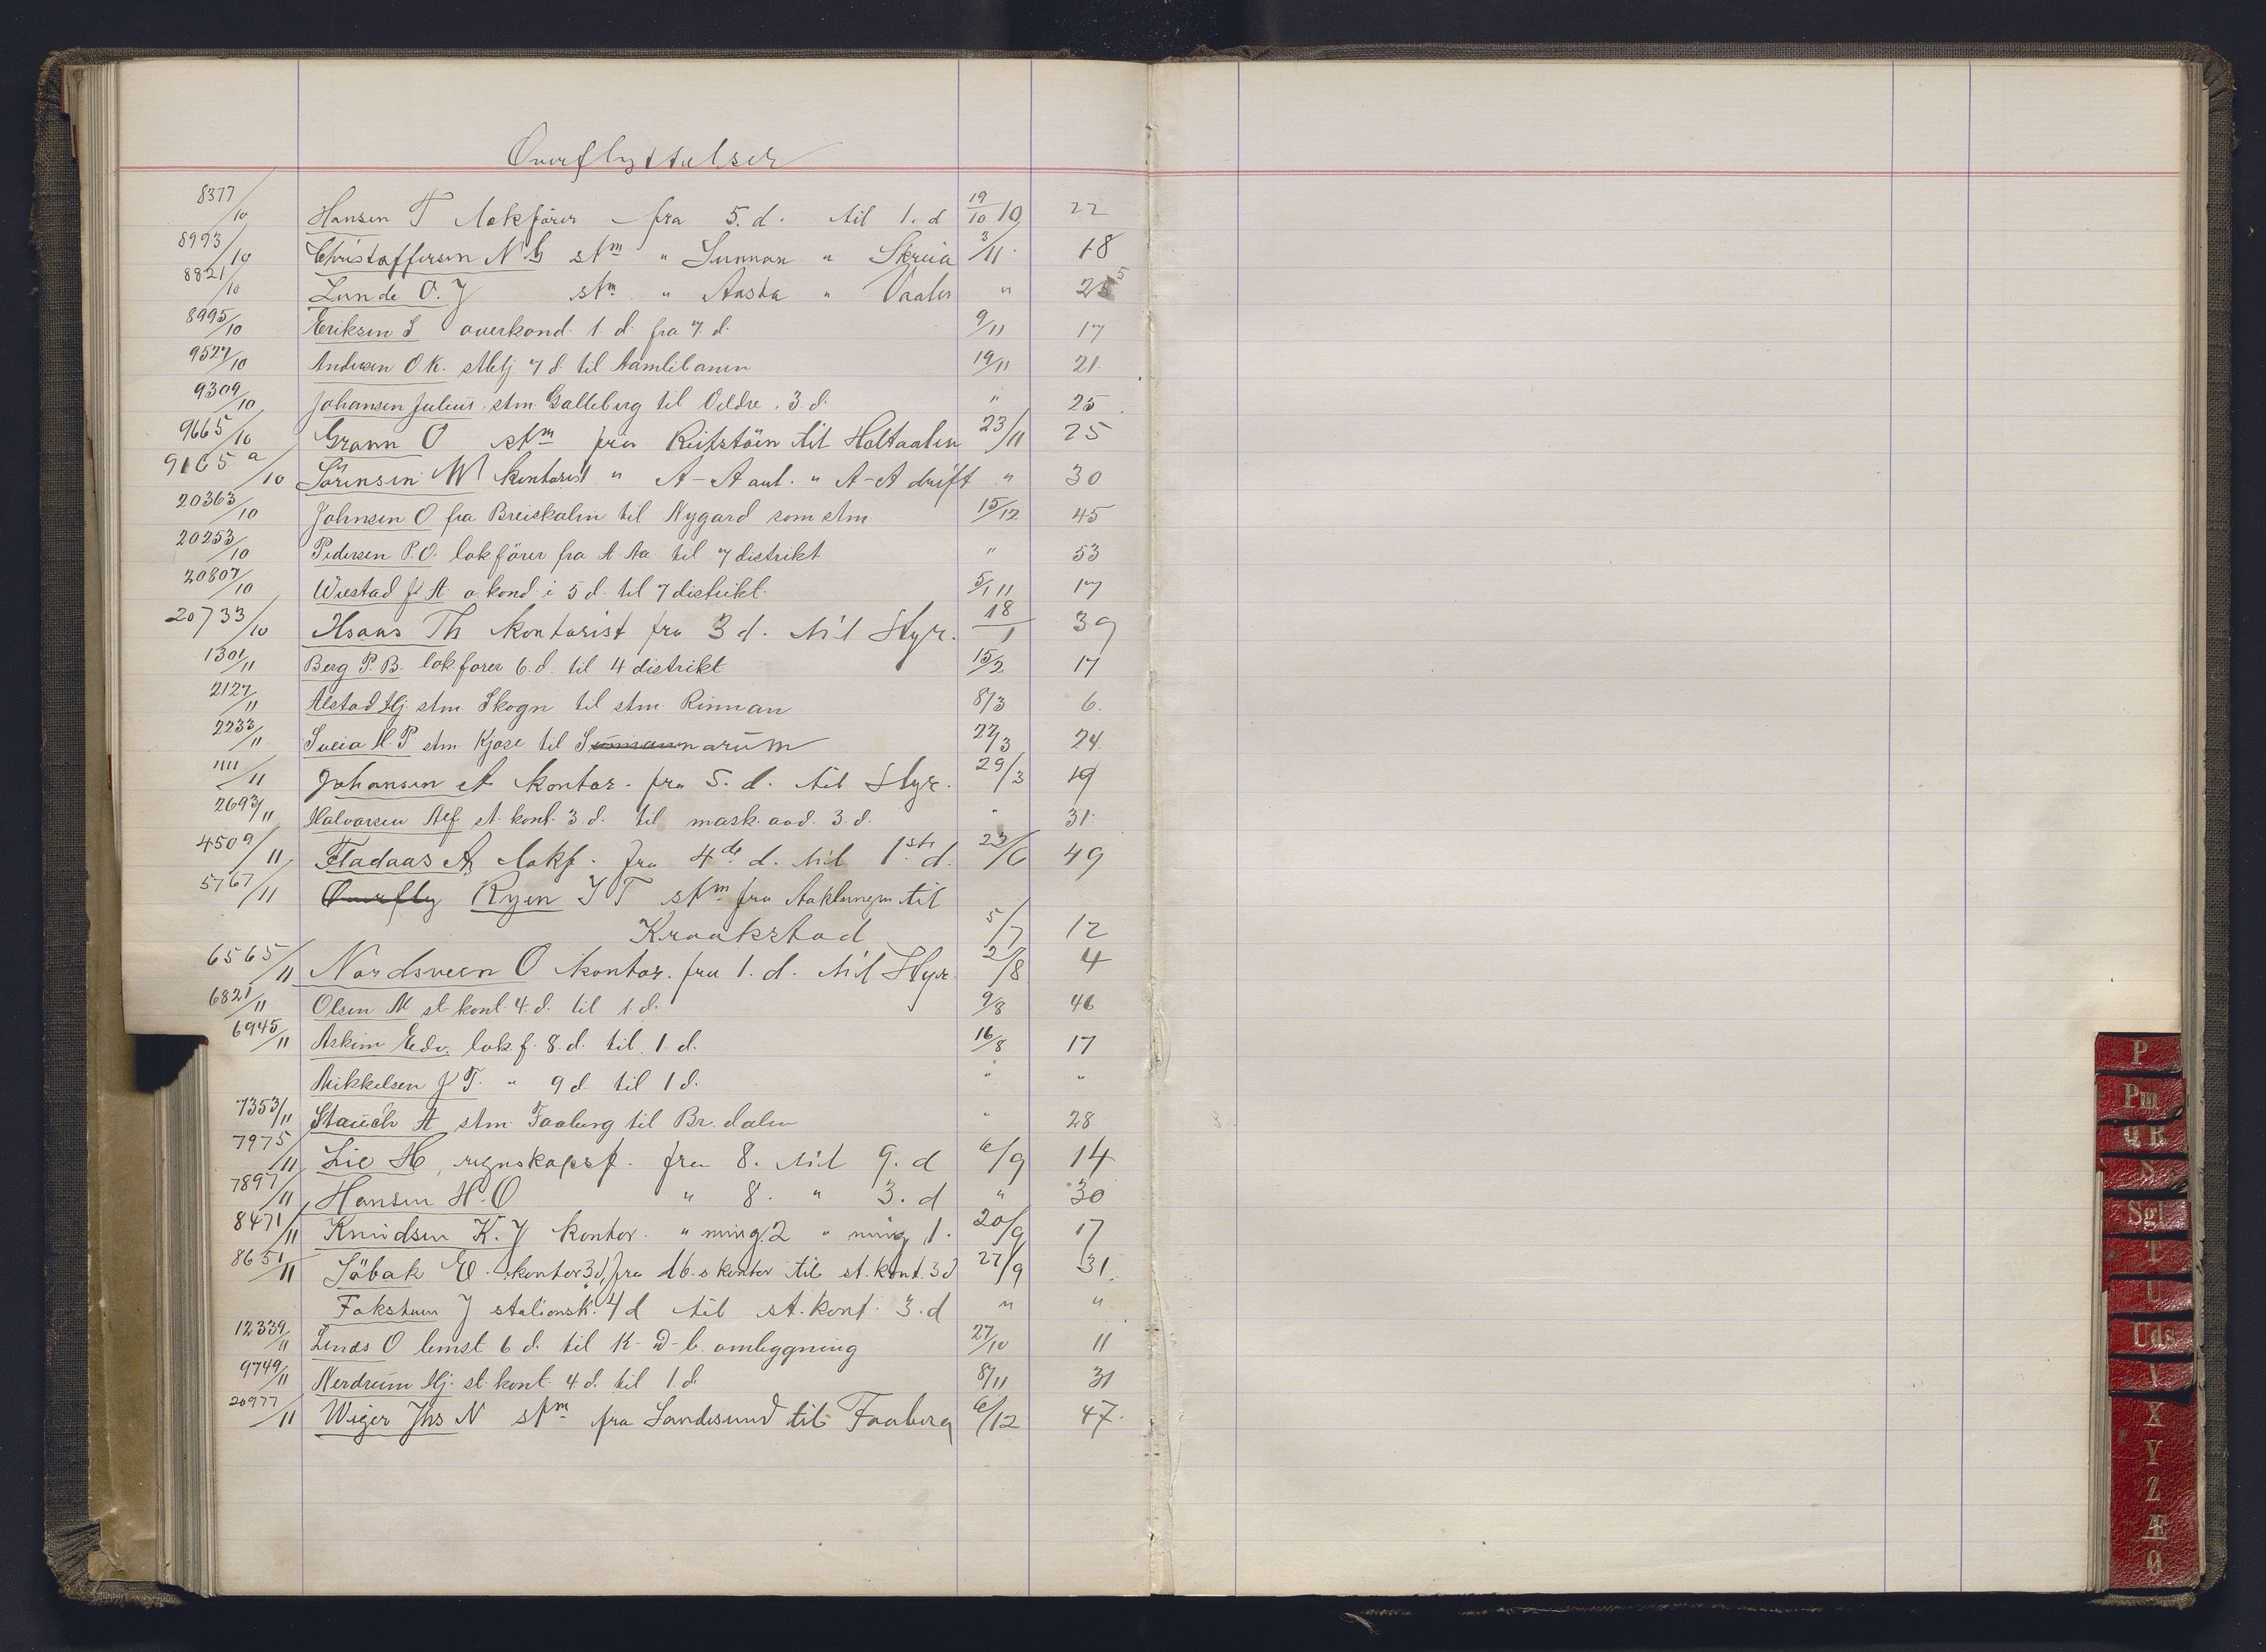 Overflyttelser
8377/10 Hansen T lokfører fra 5. d. til 1. d 19/10 10 22
8993/10 Christoffersen N G stm " Sunnan " Skreia 3/11 18
8821/10 Lunde O. J stm " Aasta " Vaaler " 25
8995/10 Eriksen S overkond. 1. d. fra 7. d. 9/11 17
9527/10 Andersen O K. stbtj. 7 d. til Aamlibanen 19/11 21.
9309/10 Johansen Julius stm. Galleberg til Veldre . 3. d. " 25
9665/10 Grann O stm fra Reitstöen til Holtaalen 23/11 25
9165 a/10 Sörensen W kontorist " A-A anl. " A-A drift " 30
20363/10 Johnsen O fra Breiskalen til Nygard som stm. 15/12 45
20253/10 Pedersen P. O. lokförer fra A. Aa. til 7 distrikt " 53
20807/10 Wiestad J A o. kond. i 5 d. til 7 distrikt. 5/1 11 17
20733/10 Hsaas Th kontorist fra 3 d. til Styr. 18/1 39
1301/11 Berg P. B. lokforer 6. d. til 4 distrikt 15/2 17
2127/11 Alstad Hj. stm. Skogn til stm. Rinnan 8/3 6.
2233/11 Sveia H. P stm. Kjose til Sannarum 22/3 24.
1111/11 Johansen A kontor. fra 5. d. til Styr. 29/3 19
2693/11 Halvorsen Alf st. kont. 3. d. til mask. avd. 3. d. " 31.
4509/11 Fladaas A lokf. fra 4de d. til 1ste d. 23/6 49
5767/11 Overfly Ryen J T stm fra Aaklungen til
Kraakstad 5/7 12
6565/11 Nordsveen O kontor. fra 1. d. til Styr. 2/8 4
6821/11 Olsen M st. kont. 4. d. til 1. d. 9/8 46
6945/11 Askim Edv. lokf. 8. d. til 1. d. 16/8 17
Mikkelsen J T. " 9 d. til 1 d. " "
7353/11 Stauch A stm. Faaberg til Br. dalen " 28
7975/11 Lie H, regnskapsf. fra 8. til 9. d 6/9 14
7897/11 Hansen H. O " 8. " 3. d " 30
8471/11 Knudsen K. J kontor. " ming. 2 " ming 1. 20/9 17
8651/11 Söbak E. kontor 3d, fra 16. s kontor til st. kont. 3 d 27/9 31.
Fokstuen J stationsk. 4 d til st. kont. 3. d " "
12339/11 Linds O lemst. 6 d. til K-D-b. omlegning 27/10 11
9749/11 Nerdrum Hj. st. kont. 4. d. til 1. d. 8/11 31
20977/11 Wiger Jhs N stm fra Landesund til Faaberg 6/12 47.
P
Pm
Q R
S
Sgl
T
U
Uds
V
X
Y
Z
Æ
Ø